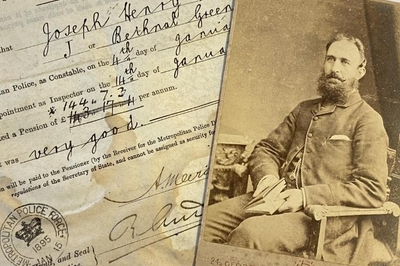 Joseph Henry
that J or Bethnal Green
an Police, as Constable, on the 4th day of Janua
ppointment as Inspector on the 14th day of Janua
× 144 . 7 . 3
ed a Pension of £ per annum.
t was very good.
will be paid to the Pensioner (by the Receiver for the Metropolitan Police D
regulations of the Secretary of State, and cannot be assigned as security for
METROPOLITAN POLICE FORCE
1895
JAN 15
and Seal